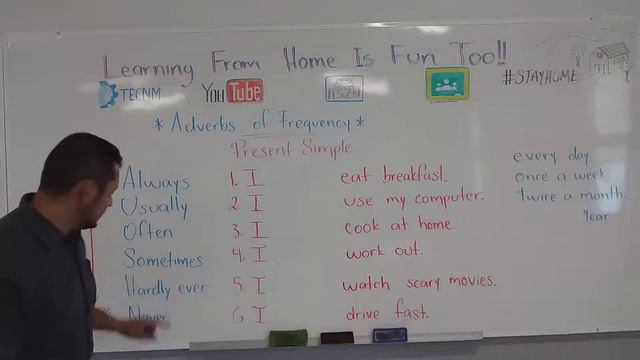 Learning From Home Is Fun Too!!
TECNM YouTube ITSZN
#STAYHOME
* Adverbs of Frequency *
Present Simple
Always 1. I eat breakfast.
Usually 2 I use my computer.
Often 3. I cook at home.
Sometimes 4. I work out.
Hardly ever 5. I watch scary movies.
Never 6. I drive fast.
every day
once a week
twice a month.
year